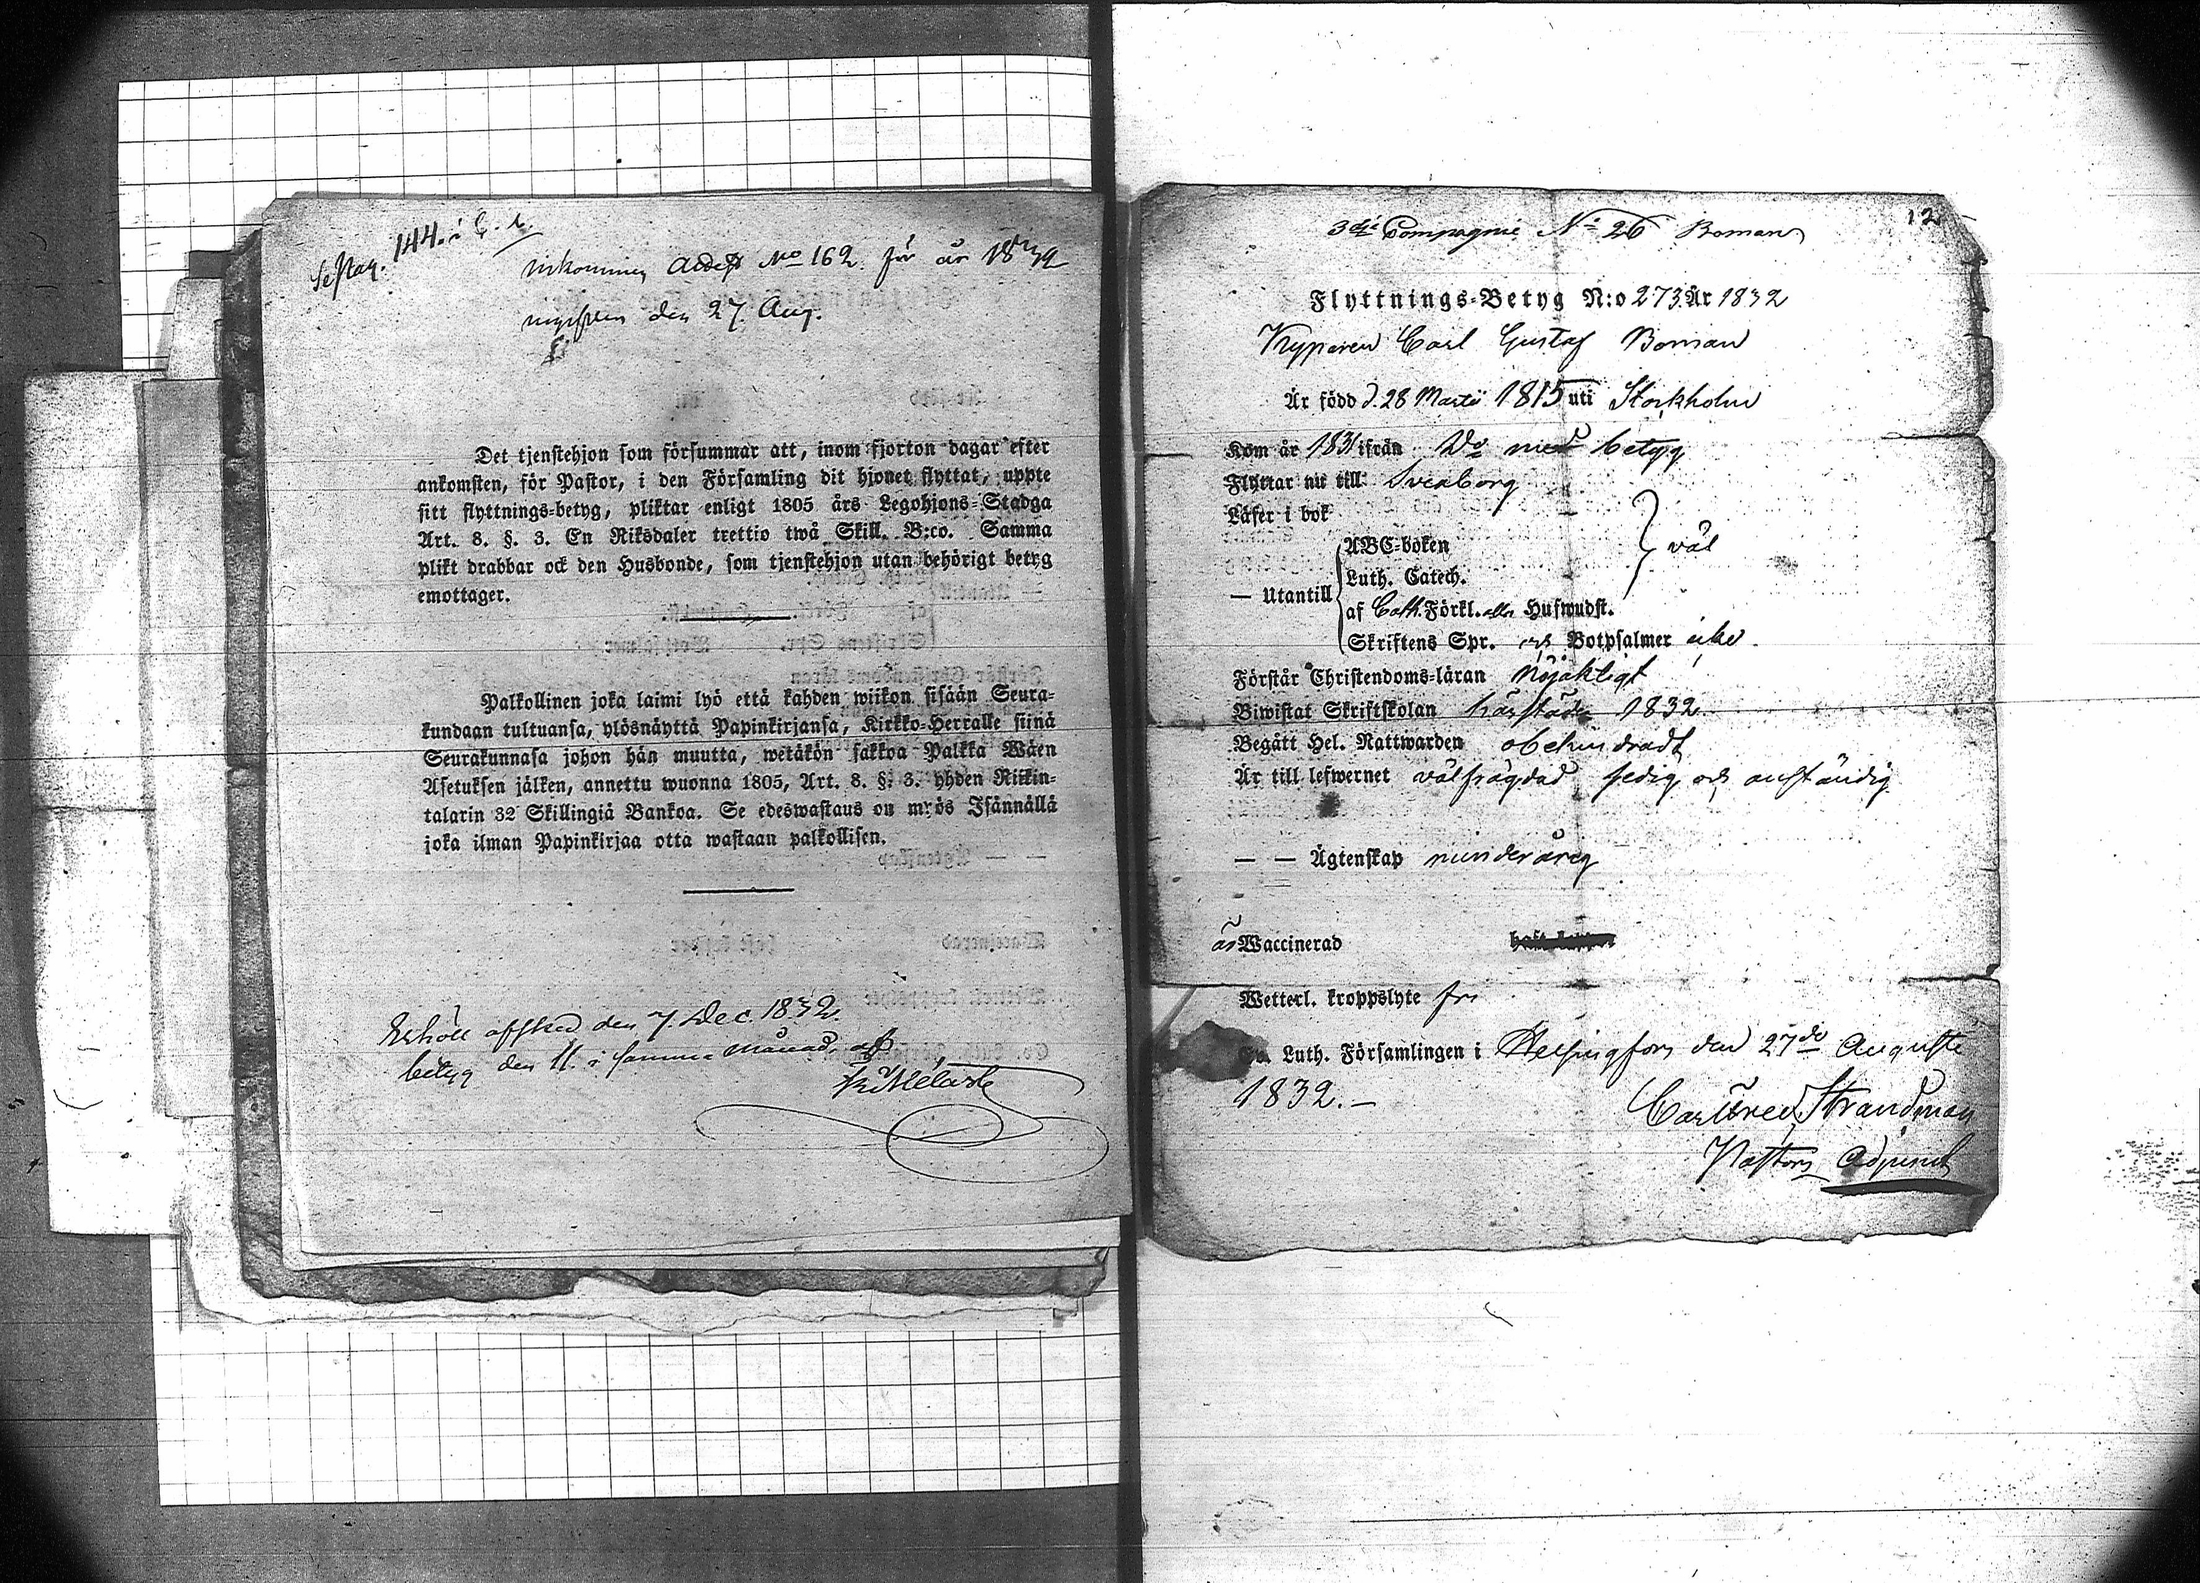 144. i C. 1.
inkommen attest No 162 för år 1832
ingifven den 27. Aug.
Det tjenstehjon som försummar att, inom fjorton dagar efter
ankomsten, för Pastor, i den Församling dit hjonet flyttat, uppte
sitt flyttnings-betyg, pliktar enligt 1805 års Legohjons-Stadga
Art. 8. §. 3. En Riksdaler trettio twå Skill. B:co. Samma
plikt drabbar ock den Husbonde, som tjenstehjon utan behörigt betyg
emottager.
Palkollinen joka laimi lyö että kahden wiikon sisään Seura-
kundaan tultuansa, ylösnäyttä Papinkirjansa, Kirkko-Herralle siinä
Seurakunnasa johon hän muutta, wetäkön sakkoa Palkka Wäen
Asetuksen jälken, annettu wuonna 1805, Art. 8. §. 3. yhden Riikin-
talarin 32 Skillingiä Bankoa. Se edeswastaus on myös Isännällä
joka ilman Papinkirjaa otta wastaan palkollisen.
Erhöll afsked den 7. Dec. 1832
betyg den 11. i samma månad, af
12
3dje Compagnie No 26 Boman
Flyttnings-Betyg N:o 273 År 1832
Kyparen Carl Gustaf Boman
Är född d. 28 Martii 1815 uti Stockholm
Kom år 1831 ifrån Do med betyg
Flyttar nu till Sveaborg
Läser i bok
ABC-boken
väl
Luth. Catech.
— Utantill
af Cath. Förkl. eller Hufwudst.
Skriftens Spr. och Botpsalmer icke
Förstår Christendoms-läran nöjaktigt
Biwistat Skriftskolan härstädes 1832
Begått Hel. Nattwarden obehindradt
Är till lefwernet välfrägdad sedig och anständig
— — Ägtenskap minderårig
är Waccinerad
Wetterl. kroppslyte fri
Luth. Församlingen i Helsingfors den 27de Augusti
1832. —
Strandman
Pastors Adjunct